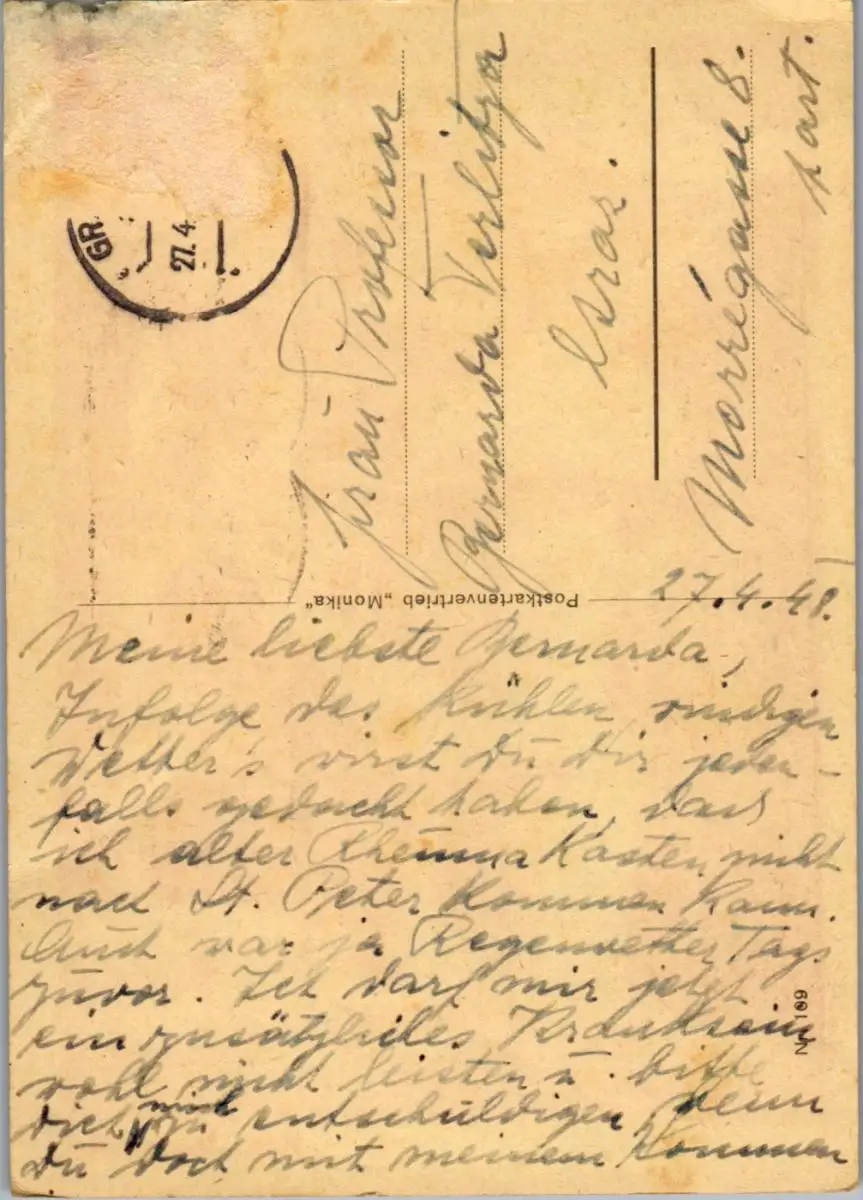 GR
27. 4
Frau Professor
Bernarda Verlitzer
Graz.
Morrégasse 8.
part.
Postkartenvertrieb „Monika“
Nr. 109
27.4.48.
Meine liebste Bernarda,
Infolge das kühlen, windigen
Wetter's wirst Du Dir jeden-
falls gedacht haben, dass
ich alter RheumaKasten nicht
nach St. Peter kommen kann.
Auch war ja Regenwetter Tags
zuvor. Ich darf mir jetzt
ein zusätzliches Kranksein
wohl nicht leisten u. bitte
Dich mich zu entschuldigen, wenn
Du doch mit meinem Kommen